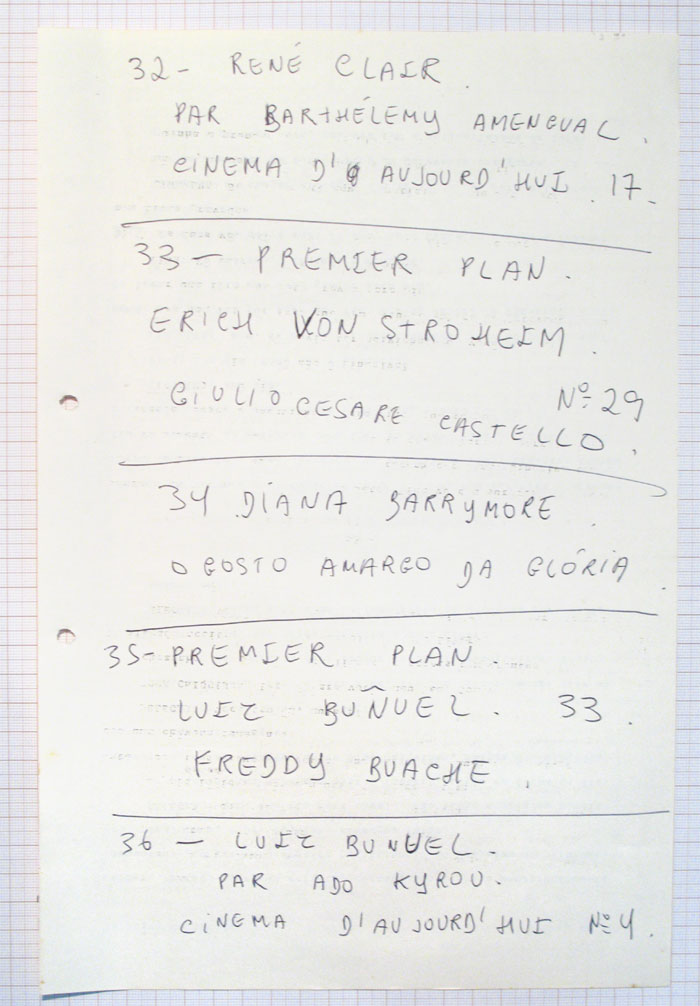 32- RENÉ CLAIR.
PAR BARTHÉLEMY AMENGUAL.
CINEMA D' AUJOURD'HUI. 17-
33- PREMIER PLAN.
ERICH VON STROHEIM.
Nº 29
GIULIO CESARE CASTELLO.
34 DIANA BARRYMORE.
O GOSTO AMARGO DA GLÓRIA.
35- PREMIER PLAN.
LUIZ BUÑUEL. 33.
FREDDY BUACHE.
36 - LUIZ BUNUEL.
PAR ADO KYROU.
CINEMA D'AUJOURD'HUI Nº 4.